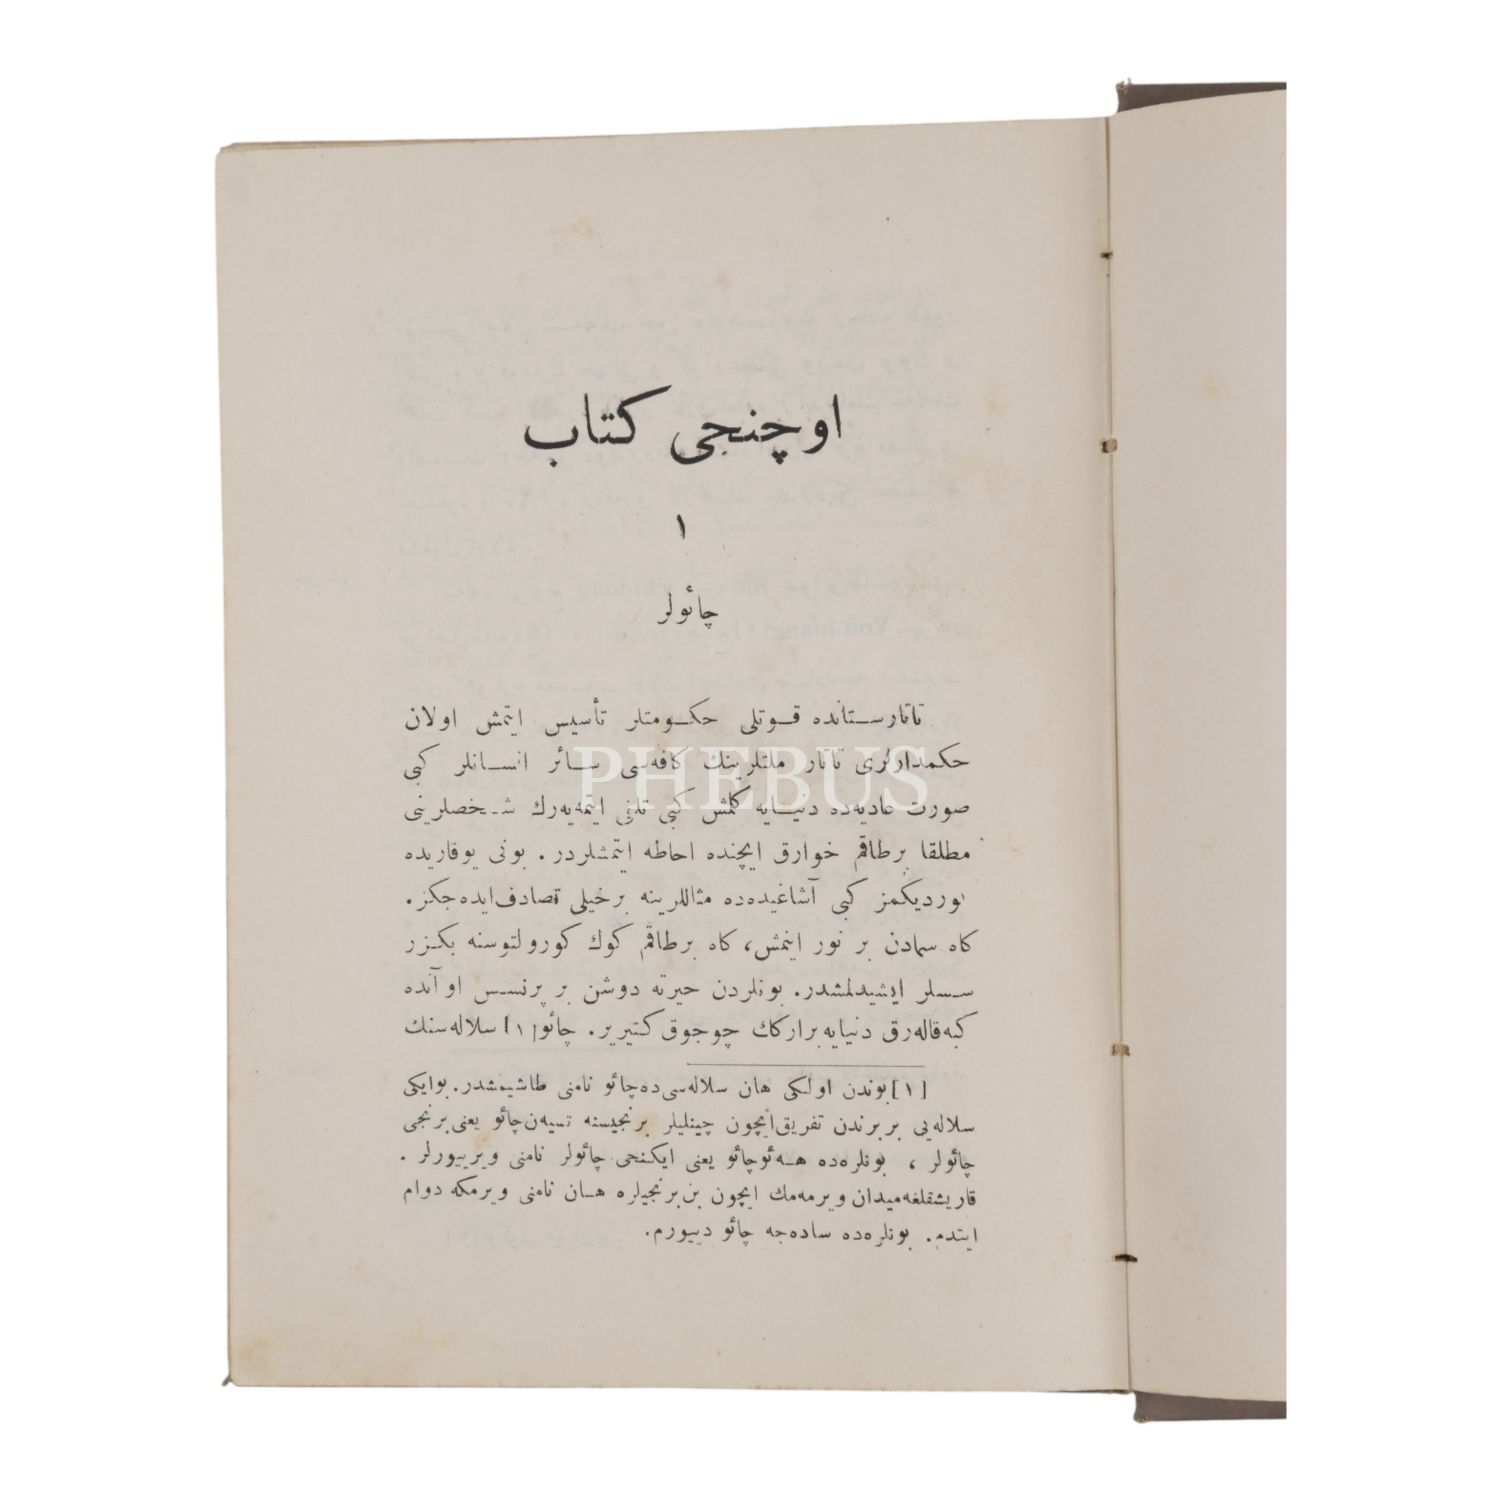 اوچنجی كتاب
١
چائولر
تاتارستانده قوتلی حكومتلر تأسیس ایتمش اولان
حكمدارلری تاتار ملتلرینك كافه‌سی سائر انسانلر كبی
صورت عادیه‌ده دنیایه كلمش كبی تلقی ایتمه‌یه‌رك شخصلرینی
مطلقا برطاقم خوارق ایچنده احاطه ایتمشلردر. بونی یوقاریده
كوردیكمز كبی آشاغیده‌ده مثاللرینه برخیلی تصادف ایده‌جكز.
كاه سمادن بر نور اینمش، كاه برطاقم كوك كورولتوسنه بكزر
سسلر ایشیدلمشدر. بونلردن حیرته دوشن بر پرنسس او آنده
كبه قاله‌رق دنیایه براركك چوجوق كتیریر. چائو[١] سلاله‌سنك
[١] بوندن اولكی هان سلاله‌سی ده چائو نامنی طاشیمشدر. بوایكی
سلاله‌یی بربرندن تفریق ایچون چینلیلر برنجیسنه تسیه‌ن چائو یعنی برنجی
چائولر ، بونلره‌ده هه‌ئوچائو یعنی ایكنجی چائولر نامنی ویرییورلر .
قاریشقلغه میدان ویرمه‌مك ایچون بن برنجیلره هان نامنی ویرمكه دوام
ایتدم. بونلره‌ده ساده‌جه چائو دییورم.
PHEBUS